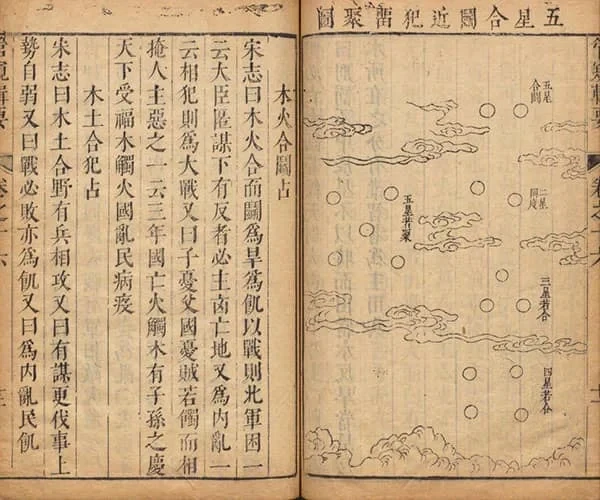 五星合鬭近犯畱聚圖
五星
合鬭
二星
同度
五星若聚
三星若合
四星若合
木火合鬭占
宋志曰木火合而鬭爲旱爲飢以戰則北軍困一
云大臣匿謀下有反者必主亡地又爲內亂一
云相犯則爲大戰又曰子憂父國憂賊若觸而相
掩人主惡之一云三年國亡火觸木有子孫之慶
天下受福木觸火國亂民病疫
木土合犯占
宋志曰木土合野有兵相攻又曰有謀更伐事上
勢自弱又曰戰必敗亦爲飢又曰爲內亂民飢
管窺輯要
卷之十六